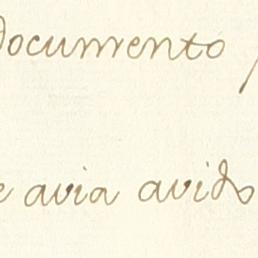 documento
e avia avido